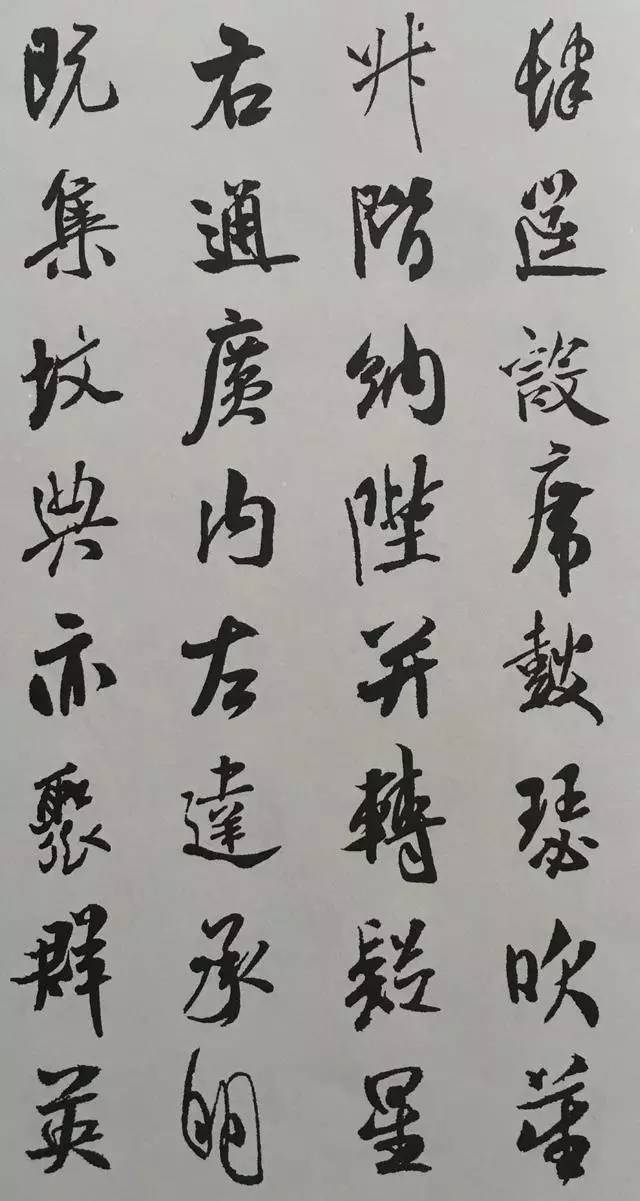 肆筵設席鼓瑟吹笙
升階納陛弁轉疑星
右通廣内左達承明
既集坟典亦聚群英